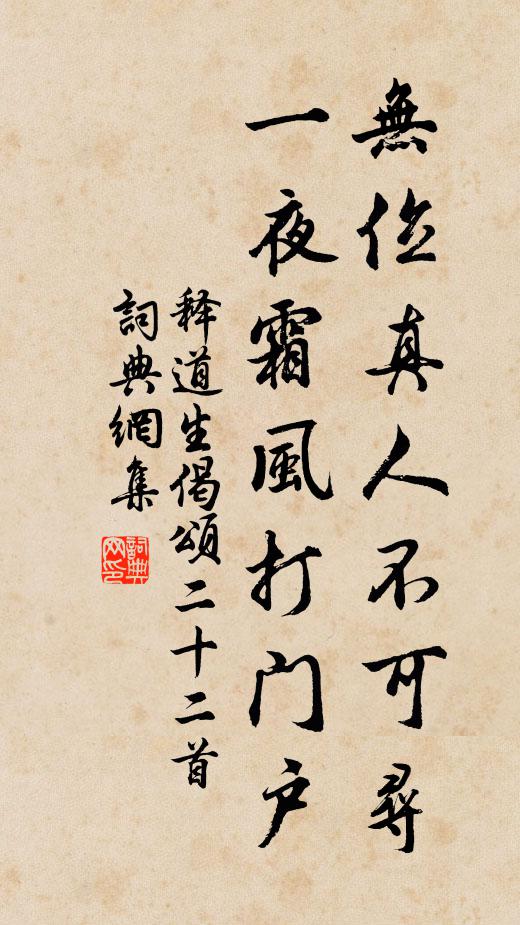 無位真人不可尋
一夜霜風打門户
释道生偈頌二十二首
詞典網集
詞典网印